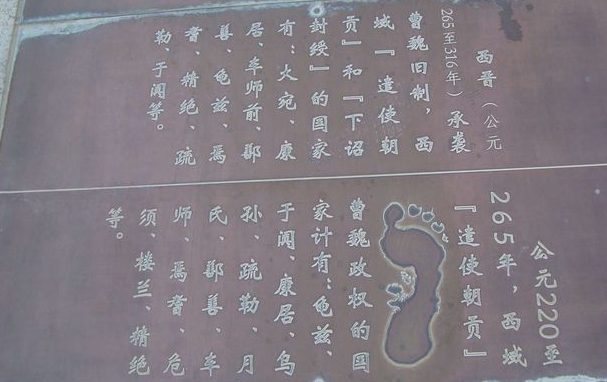 西晋（公元
265至316年）承袭
曹魏旧制，西
域『遣使朝
贡』和『下诏
封绶』的国家
有：火宛、康
居、车师前、鄯
善、龟兹、焉
耆、精绝、疏
勒、于阗等。
公元220至
265年，西域
『遣使朝贡』
曹魏政权的国
家计有：龟兹、
于阗、康居、乌
孙、疏勒、月
氏、鄯善、车
师、焉耆、危
须、楼兰、精绝
等。